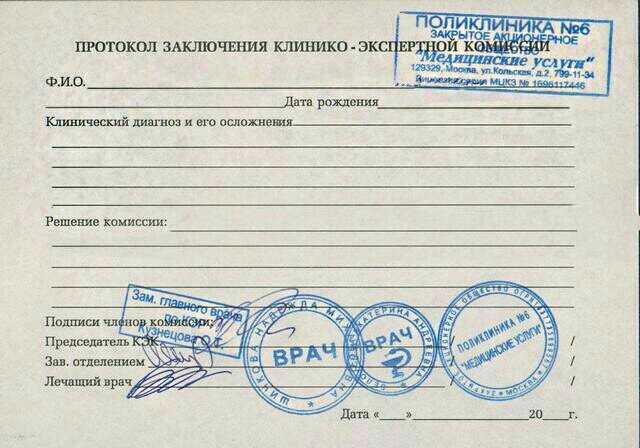 ПОЛИКЛИНИКА №6
ЗАКРЫТОЕ АКЦИОНЕРНОЕ
ОБЩЕСТВО
"Медицинские услуги"
129329, Москва, ул.Кольская, д.2, 799-11-34
МЦКЗ № 1696117446
ПРОТОКОЛ ЗАКЛЮЧЕНИЯ КЛИНИКО - ЭКСПЕРТНОЙ КОМИССИИ
Ф.И.О.
Дата рождения
Клинический диагноз и его осложнения
Решение комиссии:
Зам. главного врача
по КЭР
Кузнецова
Подписи членов комиссии:
Председатель КЭК / /
Зав. отделением / /
Лечащий врач / /
НАДЕЖДА
ВРАЧ
ЕКАТЕРИНА АНДРЕЕВНА
ВРАЧ
ПОЛИКЛИНИКА №6
"МЕДИЦИНСКИЕ УСЛУГИ"
МОСКВА
Дата «___» 20___г.